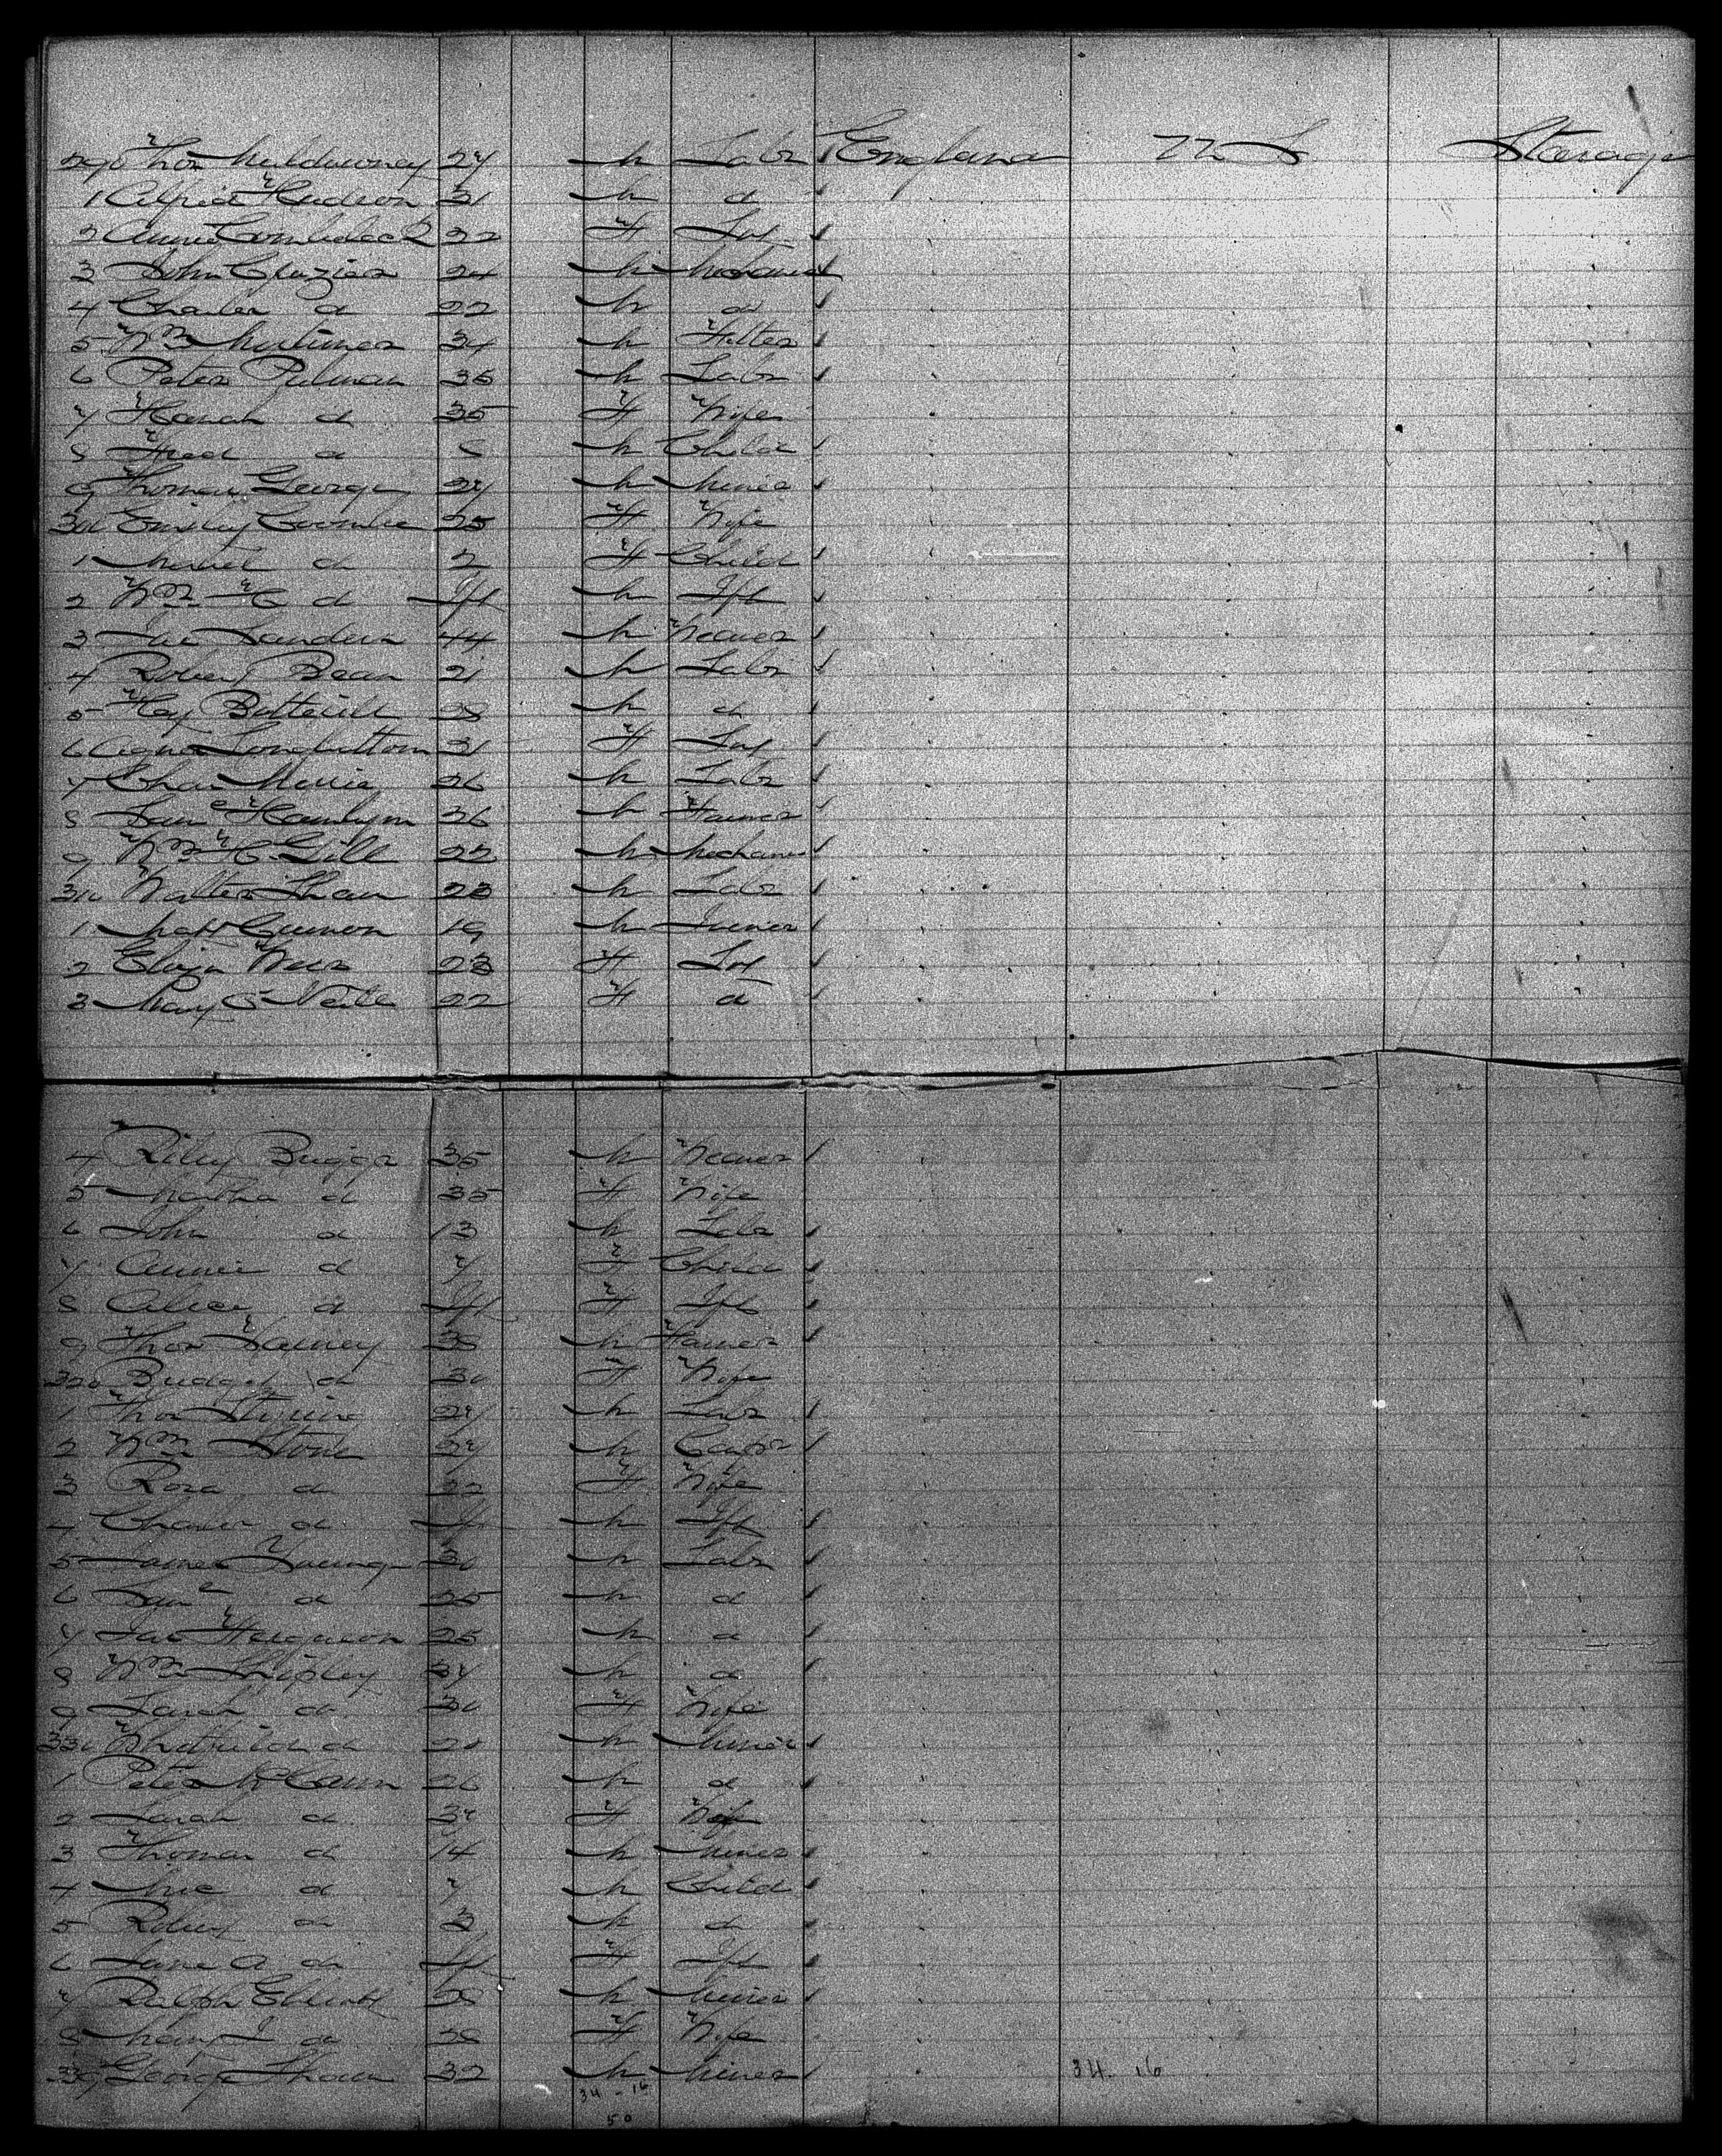 290 Thos Muldowney 27 M Labr England U S Steerage
1 Alfred Hudson 31 M d
2 Annie 22 F
3 John 24 M Mechanic
4 Charles d 22 M d
5 Wm Mortimer 34 M Fitter
6 Peter Pulman 36 M Labr
7 Hanah d 35 F Wife
8 Fred d M Child
9 Thomas George 27 M Miner
300 Emily Coombe 25 F Wife
1 d 2 F Child
2 Wm H d Inft M Inft
3 Jas Sanders 44 M Weaver
4 Robert Bean 21 M Labr
5 Hey Botterill 28 M d
6 Agnes Longbottom 31 F
7 Chas 26 M Labr
8 Saml Hamlyn 36 M Farmer
9 Wm H Gill 22 M Mechanic
310 Walter Shaw 23 M Labr
1 Matt 19 M
2 Eliza 23 F
3 Mary O'Neile 22 F d
4 Riley Briggs 35 M Weaver
5 Martha d 35 F Wife
6 John d 13 M Labr
7 Annie d 7 F Child
8 Alice d Inft F Inft
9 Thos 38 M Farmer
320 Bridget d 30 F Wife
1 Thos 27 M Labr
2 Wm Stone 27 M Carptr
3 Rosa d 22 F Wife
4 Charles d Inft M Inft
5 James Young 30 M Labr
6 Saml d 25 M d
7 Jas Ferguson 25 M d
8 Wm Shipley 37 M d
9 Sarah d 30 F Wife
330 d 20 M Miner
1 Peter McCann 26 M d
2 Sarah d 37 F Wife
3 Thomas d 14 M Miner
4 d 7 M Child
5 Robert d 3 M d
6 Jane A d Inft F Inft
7 Ralph Elliott 38 M Miner
8 Mary J d 38 F Wife
339 George Shaw 32 M Miner
34 - 16 34 16
50